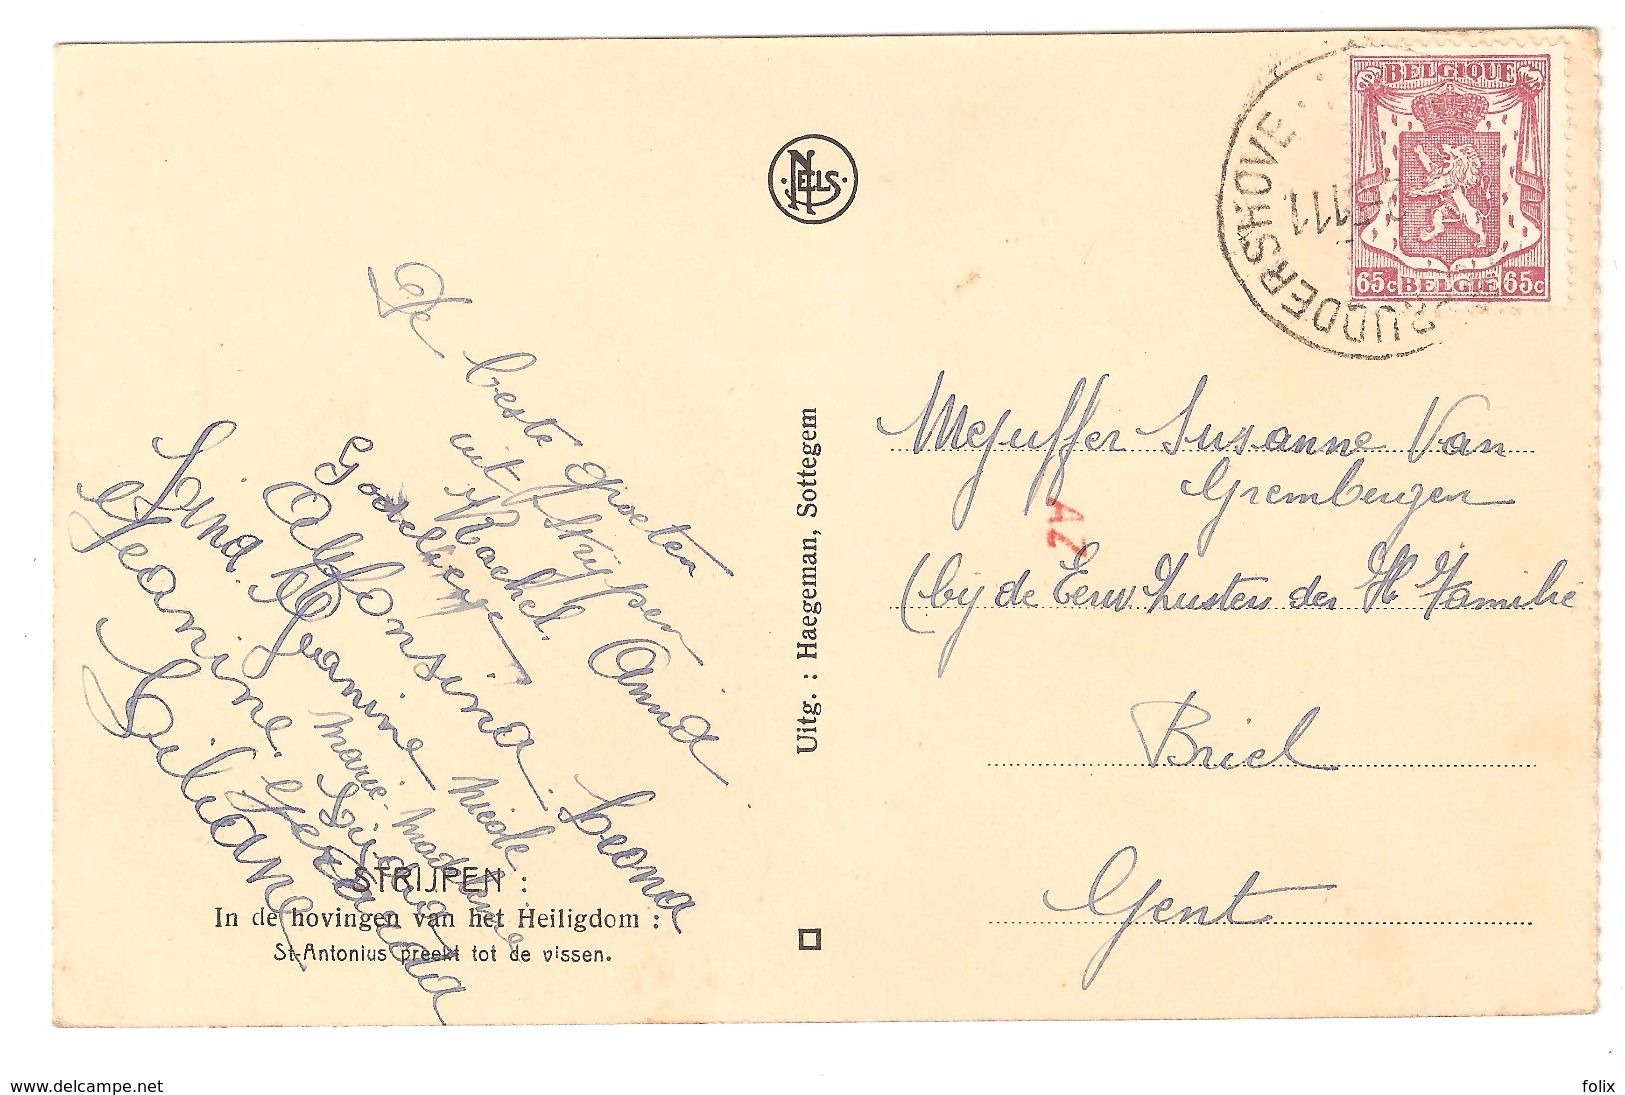 BELGIQUE
65c BELGIE 65c
RUDDERSHOVE
NELS
De beste groeten
uit Strijpen
Rachel. Anna
Godelieve
Alfonsina. Leona
Lina. Jeanine Nicole
Marie-Madeleine
Jeanine. Gerarda
Liliana
STRIJPEN :
In de hovingen van het Heiligdom :
St-Antonius preekt tot de vissen.
Uitg. : Haegeman, Sottegem
Mejuffer Susanne Van
Grembergen
AZ
(bij de Eerw Zusters der H Familie
Briel
Gent
www.delcampe.net
folix